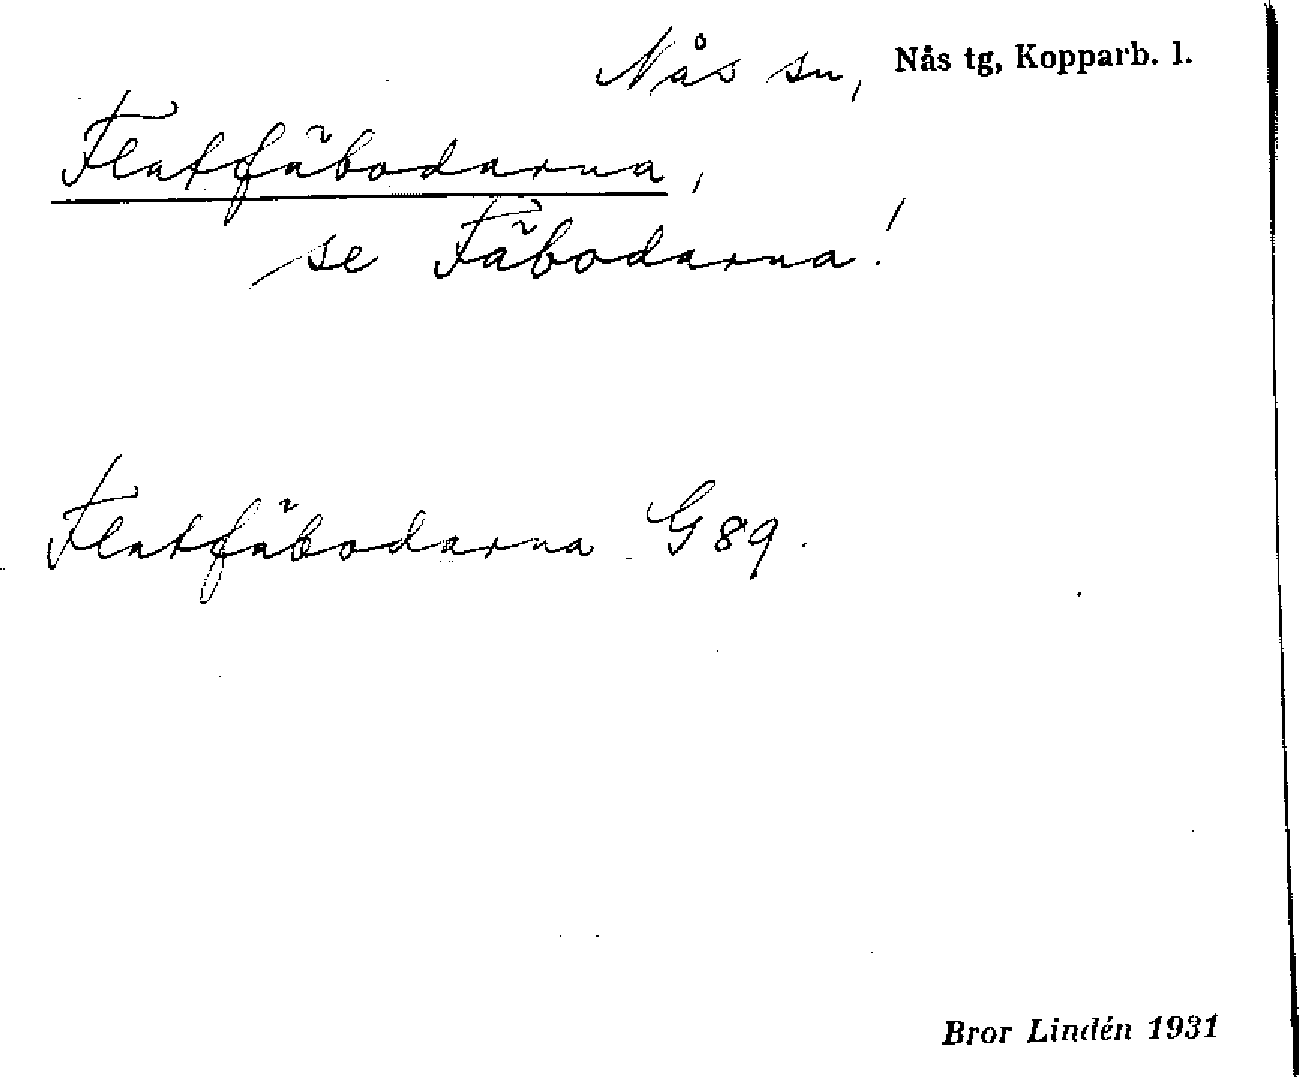 Nås sn, Nås tg, Kopparb. l.
Flatfäbodarna,
se Fäbodarna!
Flatfäbodarna G89.
Bror Lindén 1931